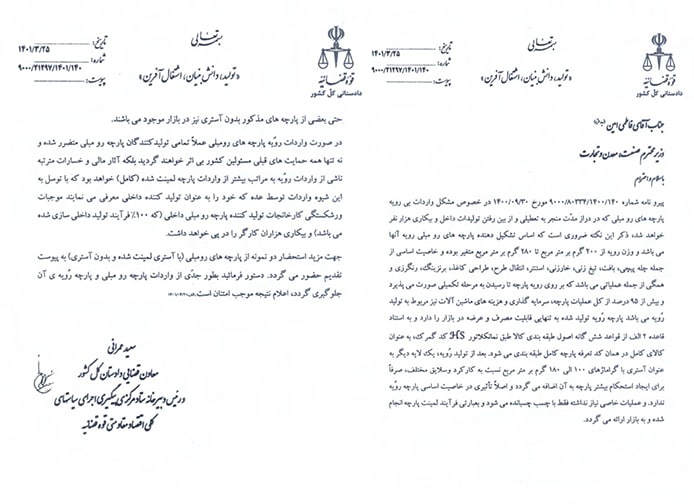 بسمه تعالی
قوه قضائیه
دادستانی کل کشور
تاریخ: ۱۴۰۱/۳/۲۵
شماره: ۹۰۰۰/۲۱۲۹۷/۱۴۰۱/۱۴۰
پیوست:
«تولید، دانش بنیان، اشتغال آفرین»
جناب آقای فاطمی امین
وزیر محترم صنعت، معدن و تجارت
با سلام و احترام
پیرو نامه شماره ۹۰۰۰/۸۰۳۳۴/۱۴۰۰/۱۴۰ مورخ ۱۴۰۰/۰۹/۳۰ در خصوص مشکل واردات بی رویه
پارچه های رو مبلی که در دراز مدّت منجر به تعطیلی و از بین رفتن تولیدات داخل و بیکاری هزار نفر
خواهد شد، ذکر این نکته ضروری است که اساس تشکیل دهنده پارچه های رو مبلی رویه آنها
می باشد و وزن رویه از ۲۰۰ گرم بر متر مربع تا ۲۸۰ گرم بر متر مربع متغیر بوده و خاصیت اساسی از
جمله جله پیچی، بافت، تیغ زنی، خارزنی، استنتر، انتقال طرح، طراحی کاغذ، برنزینگ، رنگرزی و
همگی از جمله عملیاتی می باشد که بر روی رویه پارچه تا رسیدن به مرحله تکمیلی صورت می پذیرد
و بیش از ۹۵ درصد از کل عملیات پارچه، سرمایه گذاری و هزینه های ماشین آلات نیز مربوط به تولید
رّویه می باشد پارچه رّویه تولید شده به تنهایی قابلیت مصرف و عرضه در بازار را دارد و به استناد
قاعده ۲ الف از قواعد شش گانه اصول طبقه بندی کالا طبق نمانکلاتور HS کد گمرک، به عنوان
کالای کامل در همان کد تعرفه پارچه کامل طبقه بندی می شود. بعد از تولید رویه، یک لایه دیگر به
عنوان آستری با گراماژهای ۱۰۰ الی ۱۸۰ گرم بر متر مربع نسبت به کارکرد وسلایق مختلف، صرفاً
برای ایجاد استحکام بیشتر پارچه به آن اضافه می گردد و اصلاً تأثیری در خاصیت اساسی پارچه رویّه
ندارد. و عملیات خاصی نیاز نداشته فقط با چسب چسبانده می شود و بعبارتی فرآیند لمینت پارچه انجام
شده و به بازار ارائه می گردد.
بسمه تعالی
قوه قضائیه
دادستانی کل کشور
تاریخ: ۱۴۰۱/۳/۲۵
شماره: ۹۰۰۰/۲۱۲۹۷/۱۴۰۱/۱۴۰
پیوست:
«تولید، دانش بنیان، اشتغال آفرین»
حتی بعضی از پارچه های مذکور بدون آستری نیز در بازار موجود می باشند.
در صورت واردات رویّه پارچه های رومبلی عملاً تمامی تولیدکنندگان پارچه رو مبلی متضرر شده و
نه تنها همه حمایت های قبلی مسئولین کشور بی اثر خواهند گردید بلکه آثار مالی و خسارات مترتبه
ناشی از واردات رویّه به مراتب بیشتر از واردات پارچه لمینت شده (کامل) خواهد بود که با توسل به
این شیوه واردات توسط عده که خود را به عنوان تولید کننده داخلی معرفی می نمایند موجبات
ورشکستگی کارخانجات تولید کننده پارچه رو مبلی داخلی (که ۱۰۰٪ فرآیند تولید داخلی سازی شده
می باشد) و بیکاری هزاران کارگر را در پی خواهد داشت.
جهت مزید استحضار دو نمونه از پارچه های رومبلی (با آستری لمینت شده و بدون آستری) به پیوست
تقدیم حضور می گردد. دستور فرمائید بطور جدّی از واردات پارچه رو مبلی و پارچه رّویه ی آن
جلو گیری گردد، اعلام نتیجه موجب امتنان است.
سعید عمرانی
معاون قضایی دادستان کل کشور
و رئیس دبیرخانه ستاد مرکزی پیگیری اجرای سیاستهای
کلی اقتصاد مقاومتی قوه قضائیه